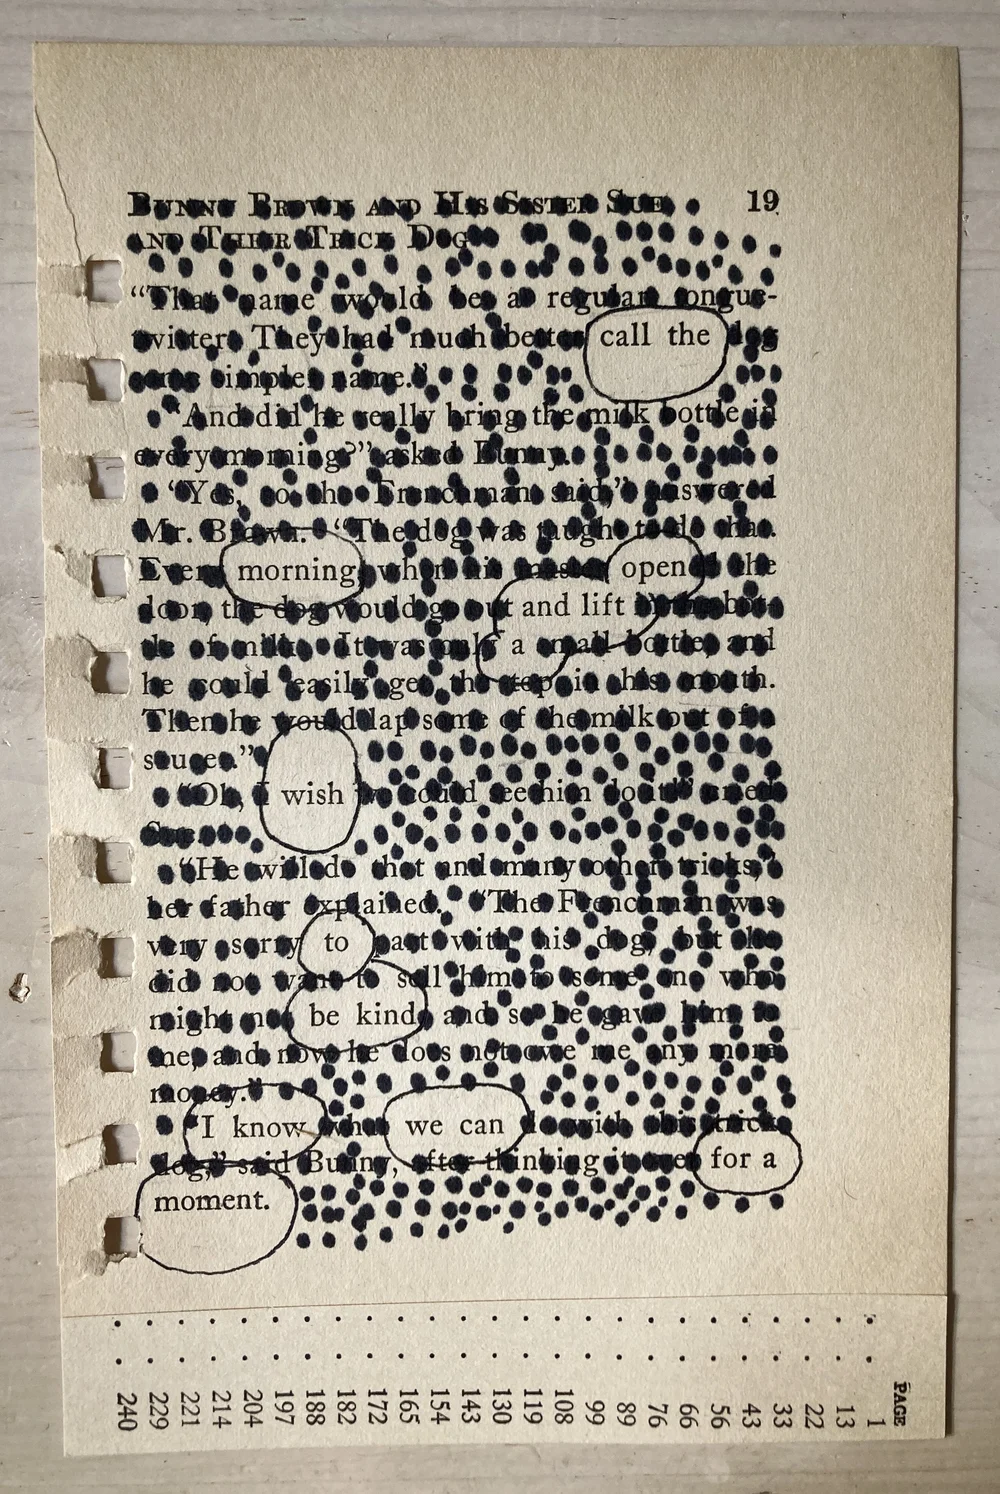 BUNNY BROWN AND HIS SISTER SUE 19
AND THEIR TRICK DOG
"That name would be a regular tongue-
twister. They had much better call the dog
some simpler name."
"And did he really bring the milk bottle in
every morning?" asked Bunny.
"Yes, so the Frenchman said," answered
Mr. Brown. "The dog was taught to do that.
Every morning when his master opened the
door, the dog would go out and lift in the bot-
tle of milk. It was only a small bottle, and
he could easily get the top in his mouth.
Then he would lap some of the milk out of a
saucer."
"Oh, I wish we could see him do it!" cried
Sue.
"He will do that and many other tricks,"
her father explained. "The Frenchman was
very sorry to part with his dog, but he
did not want to sell him to some one who
might not be kind, and so he gave him to
me, and now he does not owe me any more
money."
"I know what we can do with this trick
dog," said Bunny, after thinking it over for a
moment.
PAGE
1
13
22
33
43
56
66
76
89
99
108
119
130
143
154
165
172
182
188
197
204
214
221
229
240